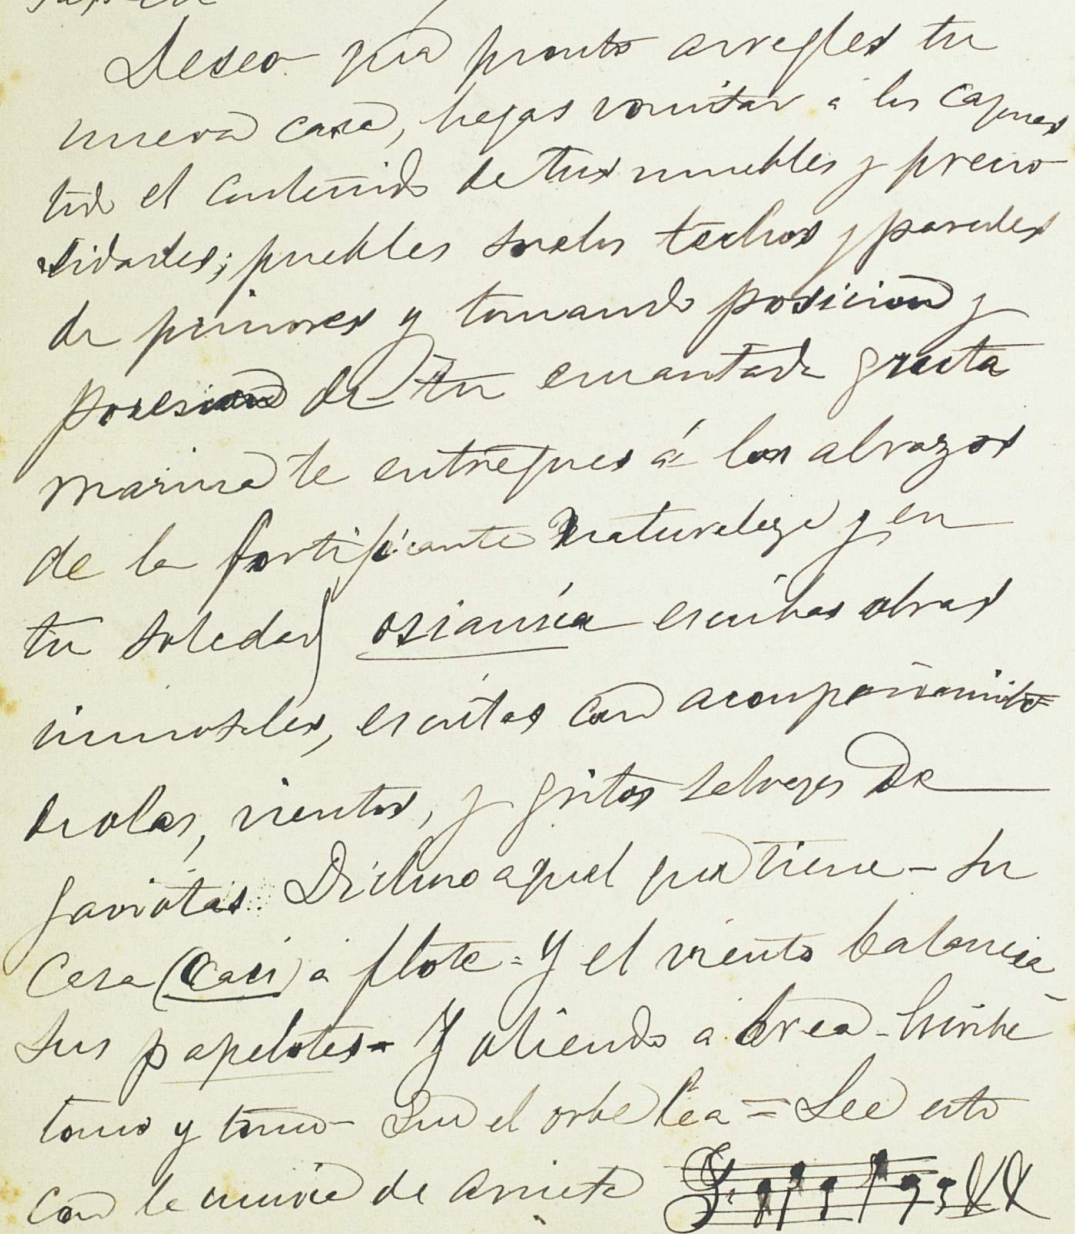 Deseo que pronto arregles tu
nueva casa, hagas vomitar á los cajones
todo el contenido de tus muebles y precio-
sidades; puebles suelos techos y paredes
de primores y tomando posicion y
posesion de tu encantada gruta
marina te entregues á los abrazos
de la fortificante naturaleza y en
tu soledad osianica escribas obras
inmortales, escritas con acompañamiento
de olas, vientos, y gritos salvages de
gaviotas. Dichoso aquel que tiene - su
casa (casi) a flote = Y el viento balancea
sus papelotes - Y oliendo a brea - Escribe
tomo y tomo - Que el orbe lea = Lee esto
con la musica de Arrieta